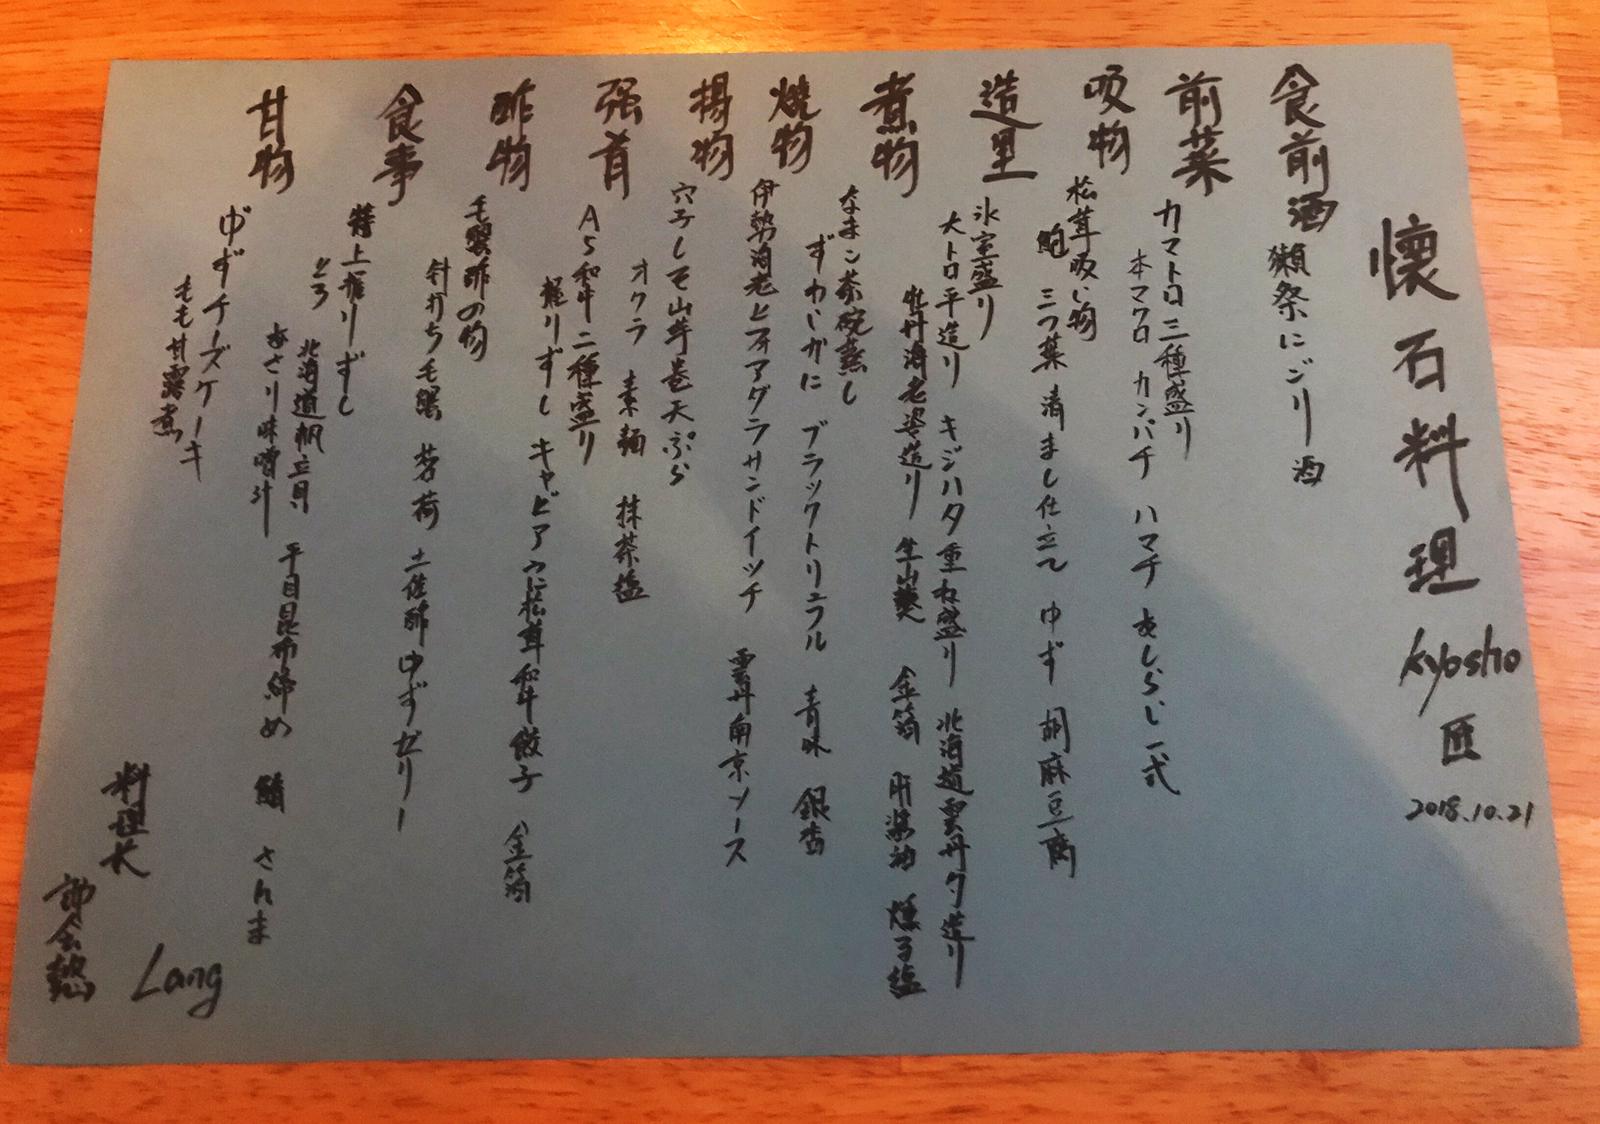 懐石料理 Kyosho 匠 2018.10.21
食前酒 獺祭にごり酒
前菜
カマトロ三種盛り
本マグロ カンパチ ハマチ あしらい一式
吸物
松茸吸い物
鮑 三つ葉 清まし仕立て ゆず 胡麻豆腐
造里
氷室盛り
大トロ平造り キジハタ重ね盛り 北海道雲丹夕造り
牡丹海老姿造り 生山葵 金箔 肝醤油 燻る塩
煮物
なまこ茶碗蒸し
ずわいがに ブラックトリュフル 青味 銀杏
焼物
伊勢海老とフォアグラサンドイッチ 雲丹南京ソース
揚物
穴子しそ山芋巻天ぷら
オクラ 素麺 抹茶塩
强肴
A5和牛二種盛り
握りずし キャビア 松茸和牛餃子 金箔
酢物
毛蟹酢の物
針打ち毛蟹 茗荷 土佐酢ゆずゼリー
食事
特上握りずし
とろ 北海道帆立貝 平目昆布締め 鯖 さんま
あさり味噌汁
甘物
ゆずチーズケーキ
もも甘露煮
料理长
Lang